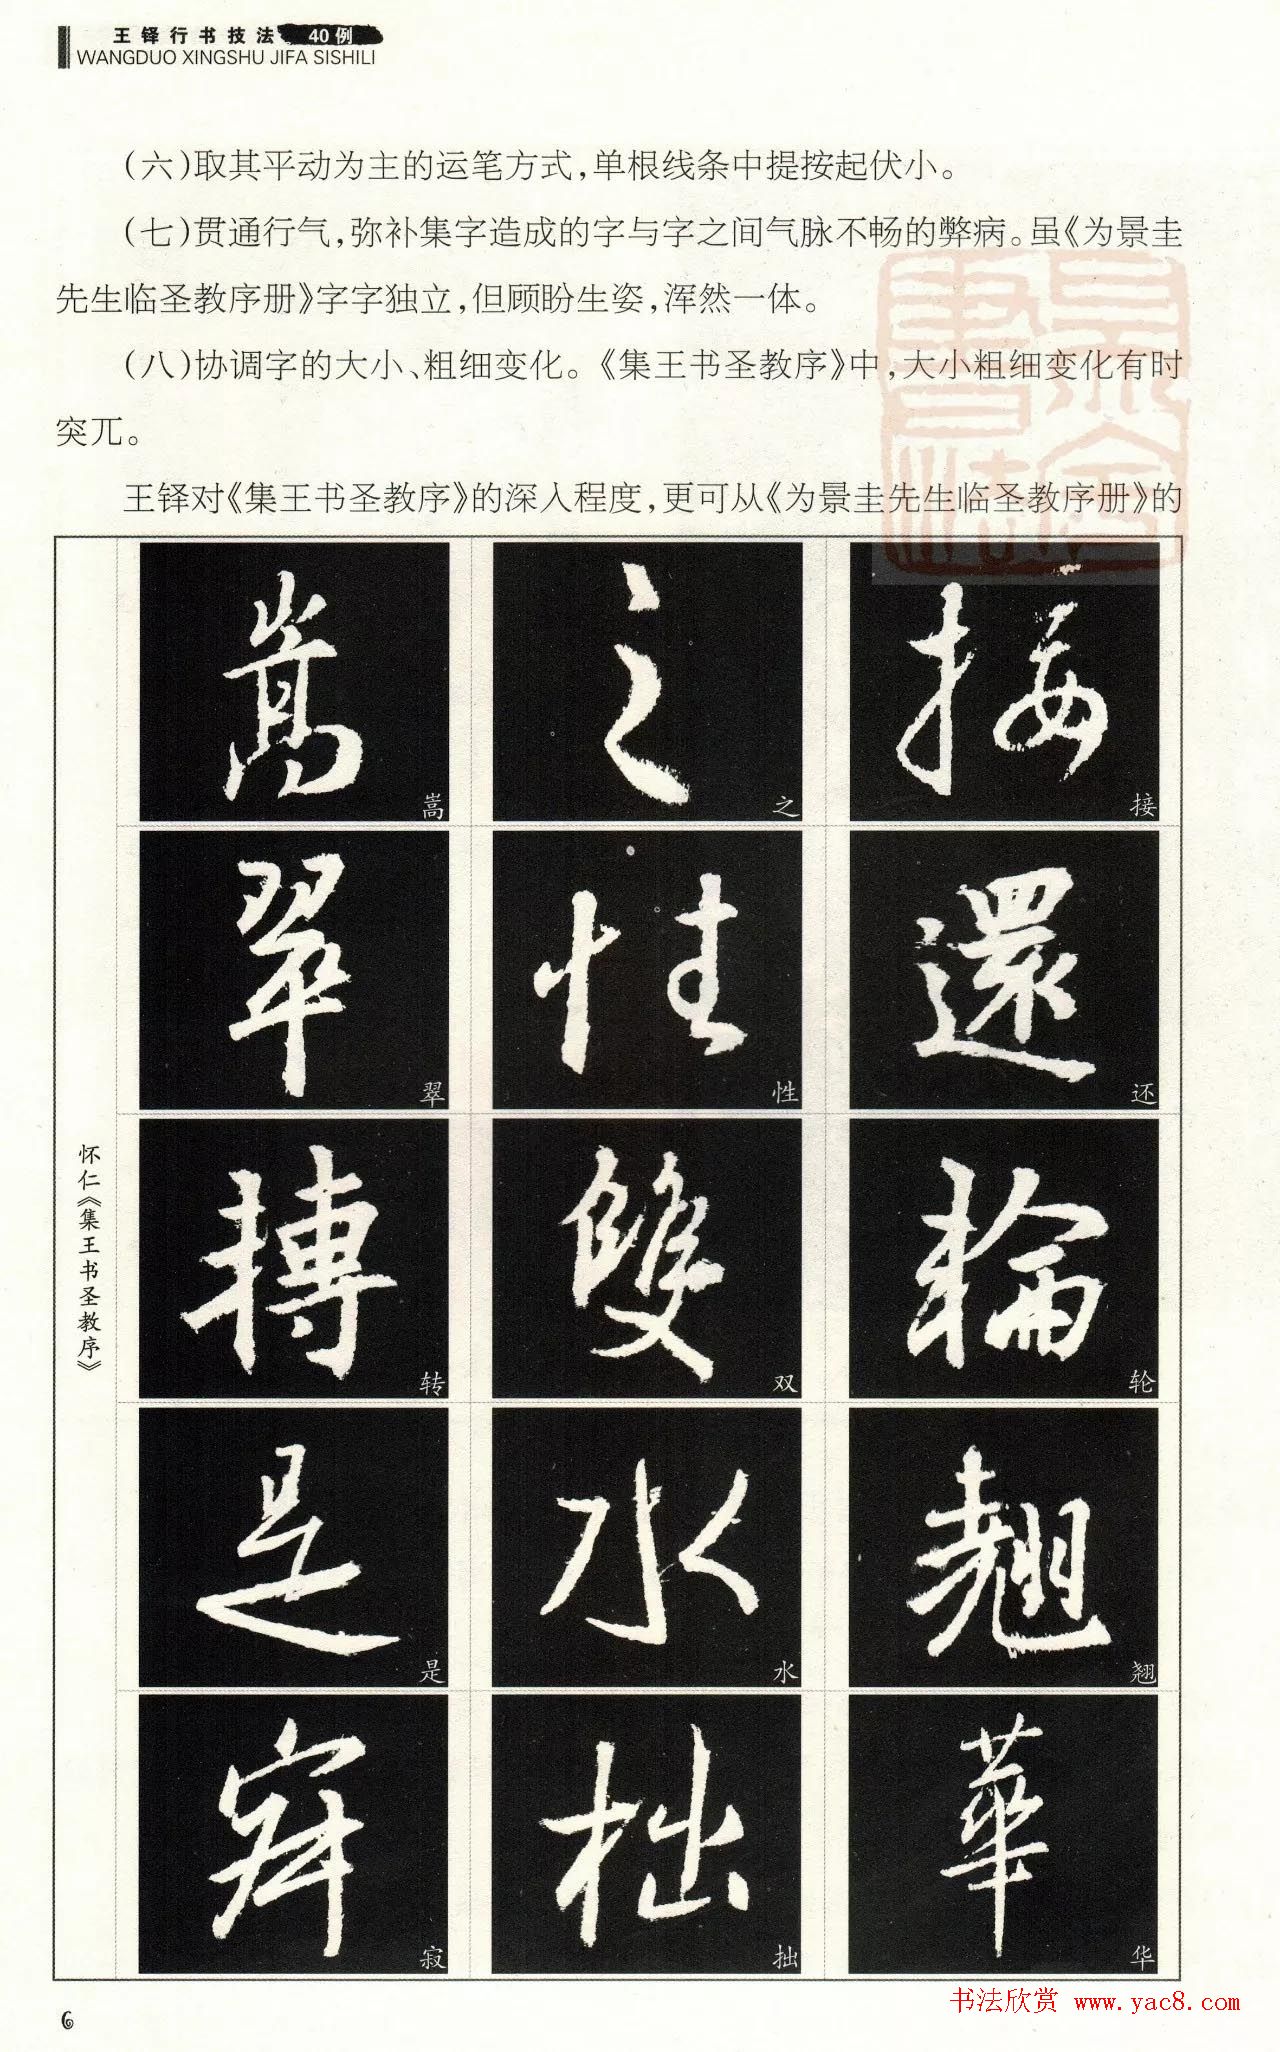 王铎行书技法 40例
WANGDUO XINGSHU JIFA SISHILI
(六)取其平动为主的运笔方式,单根线条中提按起伏小。
(七)贯通行气,弥补集字造成的字与字之间气脉不畅的弊病。虽《为景圭
先生临圣教序册》字字独立,但顾盼生姿,浑然一体。
(八)协调字的大小、粗细变化。《集王书圣教序》中,大小粗细变化有时
突兀。
王铎对《集王书圣教序》的深入程度,更可从《为景圭先生临圣教序册》的
怀仁《集王书圣教序》
嵩 之 接
嵩 之 接
翠 性 還
翠 性 还
雙 輪
转 双 轮
是 水 翘
是 水 翘
拙 華
寂 拙 华
6
书法欣赏 www.yac8.com